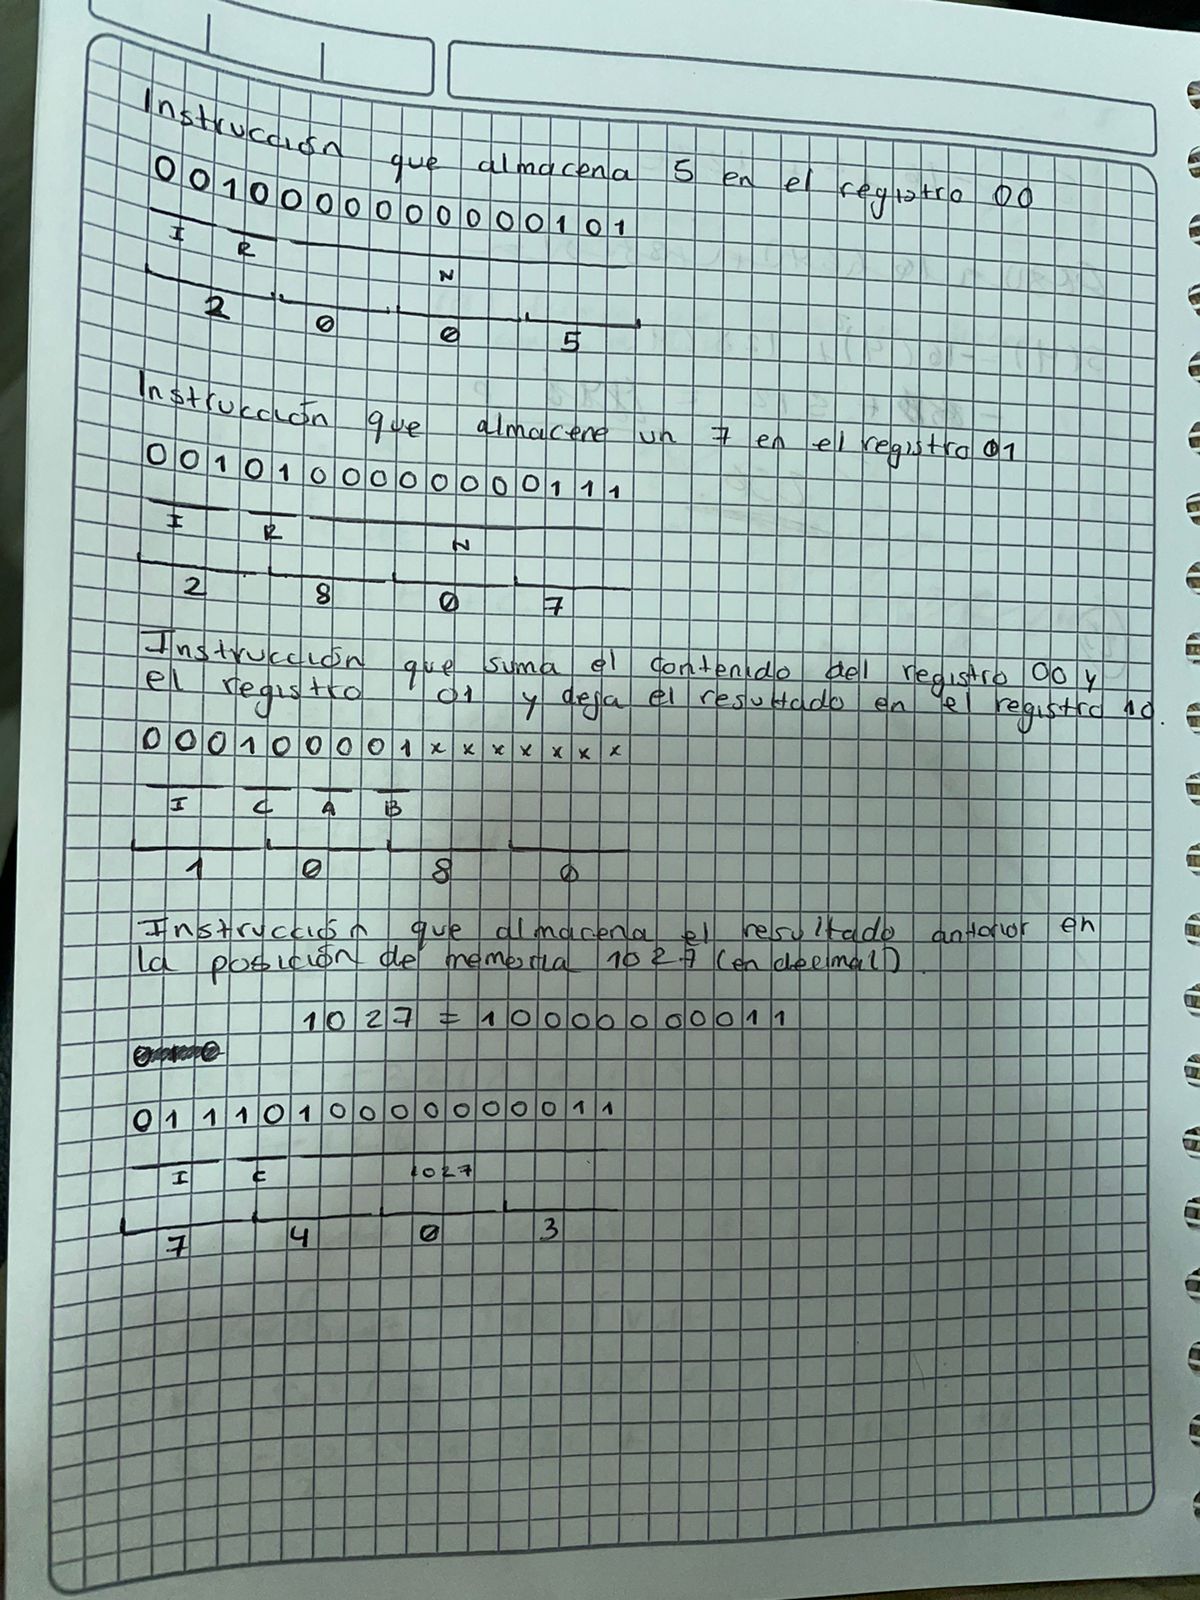 Instrucción que almacena 5 en el registro 00
0010000000000101
I R N
2 0 0 5
Instrucción que almacene un 7 en el registro 01
0010100000000111
I R N
2 8 0 7
Instrucción que suma el contenido del registro 00 y
el registro 01 y deja el resultado en el registro 10.
000100001xxxxxxx
I C A B
1 0 8 0
Instrucción que almacena el resultado anterior en
la posición de memoria 1027 (en decimal)
1027 = 10000000011
0111010000000011
I C 1027
7 4 0 3